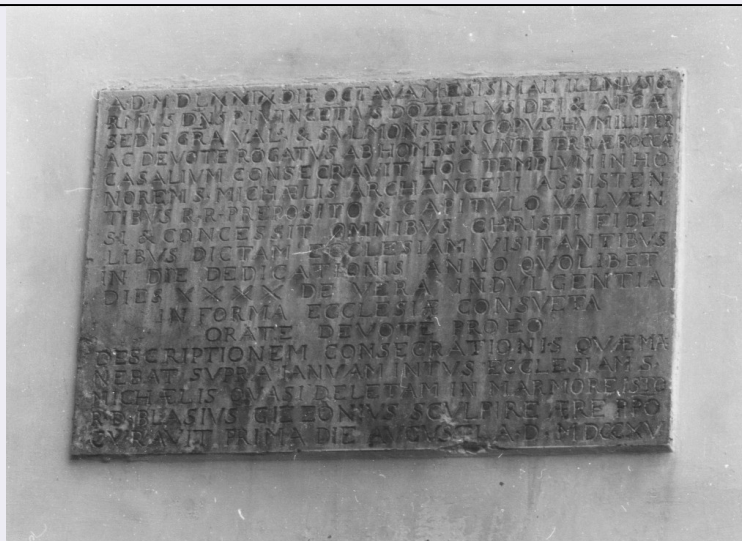 A·D·M·D LXXIX DIE OCTAVA MĒSIS MAII ILLMVS &
RMVS DNS D VINCĒTIVS DOZELLVS DEI & APCÆ
SEDIS GRA VALÆ & SVLMONS EPISCOPVS HVMILITER
AC DEVOTE ROGATVS AB HOMBS & VNTE TERRÆ ROCCÆ
CASALIVM CONSECRAVIT HOC TEMPLVM IN HO
NOREM S. MICHÆLIS ARCHANGELI ASSISTEN
TIBVS R.R. PREPOSITO & CAPITVLO VALVEN
SI & CONCESSIT OMNIBVS CHRISTI FIDE
LIBVS DICTAM ECCLESIAM VISITANTIBVS
IN DIE DEDICATIONIS ANNO QVOLIBET
DIES XXXX DE VERA INDVLGENTIA
IN FORMA ECCLESIÆ CONSVETA
ORATE DEVOTE PRO EO
DESCRIPTIONEM CONSECRATIONIS QVÆ MA
NEBAT SVPRA IANVAM INTVS ECCLESIAM S.
MICHÆLIS QVASI DELETAM IN MARMORE
BLASIVS SCVLPIRE PRO
CVRAVIT PRIMA DIE AVGVSTI A·D· MDCCXV